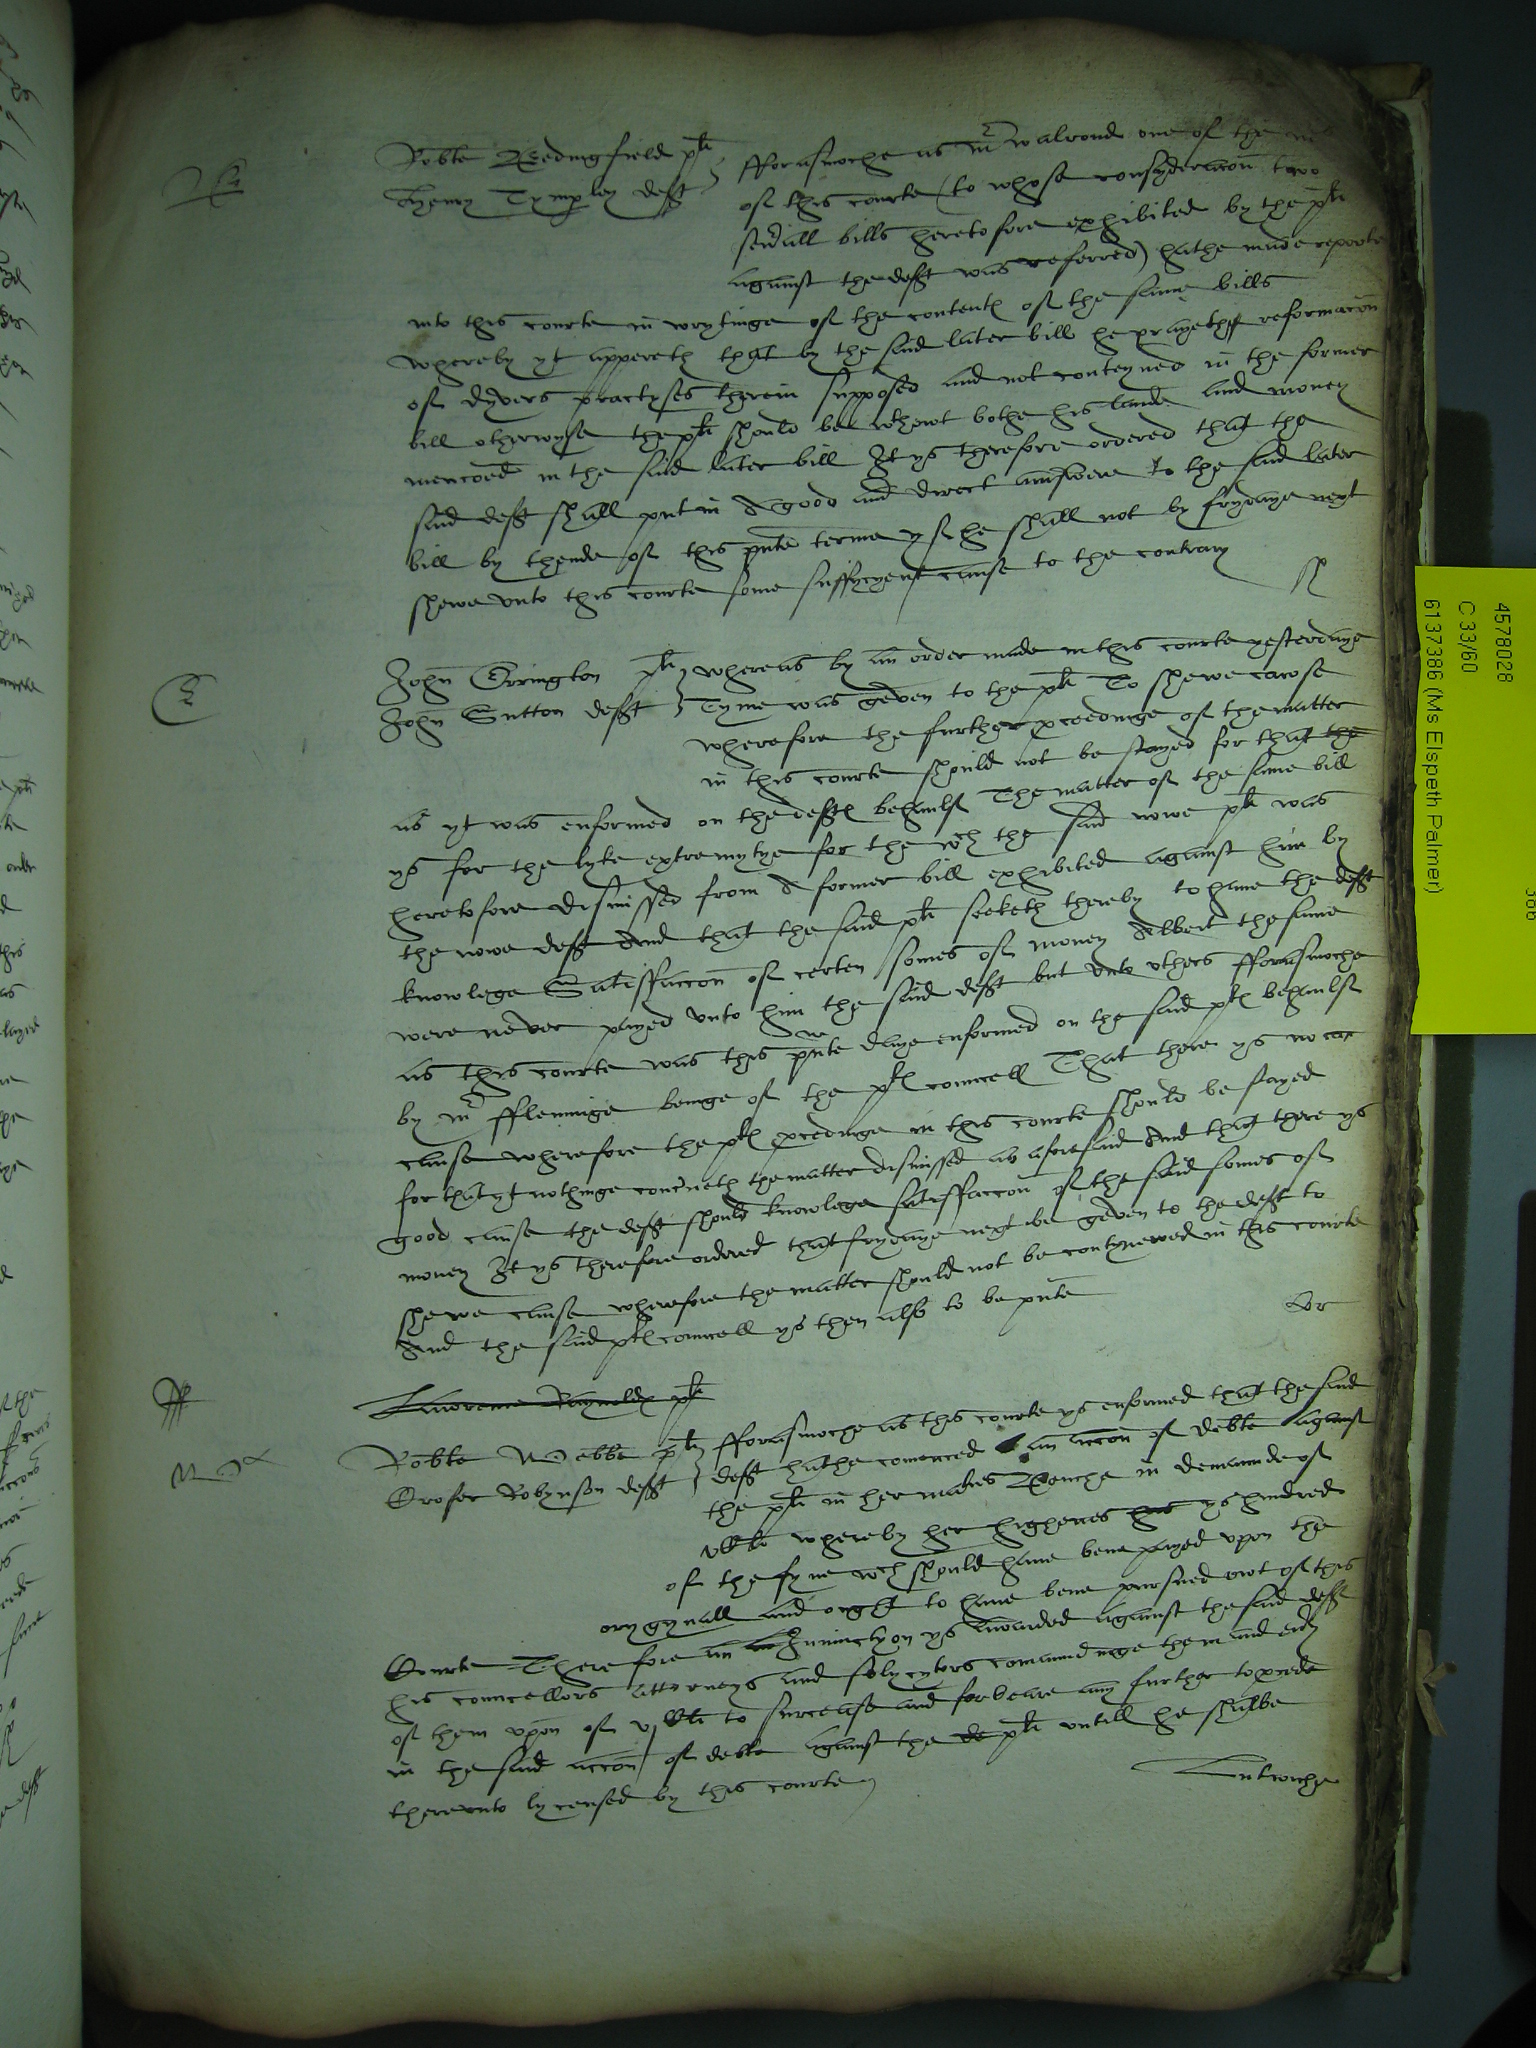 Robte Bedingfield plt
Henry Tymperley deft
fforasmoche as Mr Walrond one of the
of this courte (to whose consyderacon two
sevall bills heretofore exhibited by the plt
against the deft was referred) hathe made reporte
into this courte in wrytinge of the content of the same bills
whereby yt appereth that by the said later bill he prayeth reformacon
of dyvers practyses therein supposed and not conteyned in the former
bill otherwyse the plt should be wthowt bothe his lande and money
mencoed in the said later bill It ys therefore ordered that the
said deft shall put in A good and direct aunswere to the said later
bill by thende of this pnte terme yf he shall not by frydaye next
shewe unto this courte some suffycyent cause to the contrary
E
John Errington plt
John Sutton deft
whereas by an order made in this courte yesterdaye
Tyme was geven to the plt To shewe cawse
wherefore the further pceedinge of the matter
in this courte should not be stayed for that the
as yt was enformed on the defts behaulf The matter of the same bill
ys for the lyke extremytye for the wch the said nowe plt was
heretofore dismissed from A former bill exhibited against him by
the nowe deft And that the said plt seeketh thereby to have the deft
knowlege Satisffaccon of certen somes of money Albeit the same
were never payed unto him the said deft but unto others fforasmoche
as this courte was this pnte daye enformed on the said plts behaulf
by Mr fflemminge beinge of the plts councell That there ys no
cause wherefore the plts pceedinge in this courte should be stayed
for that yt nothinge concneth the matter dismissed as aforesaid And that there ys
good cause the deft should knowlege satisffaccon of the said somes of
money It ys therefore ordered that frydaye next be geven to the deft to
shewe cause wherefore the matter should not be contynewed in this courte
And the said plts councell ys then also to be pnte
Lawrence Raynolds plt
Robte Webbe plt
Crofer Robynson deft
fforasmoche as this courte ys enformed that the said
deft hathe comenced an accon of debte against
the plt in her mates Benche in demaunde of
whereby her highenes his ys hindred
of the fyne wch should have bene payed upon the
orygynall and ought to have bene pursued owt of this
Courte Therefore an Iniunctyon ys awarded against the said deft
his councellors attorneys and solycytors comaundinge them and evy
of them upon of to surcease and forbeare any further to pcede
in the said accon of debte against the de plt untill he shalbe
thereunto lycensed by this courte
4578028
C 33/60
6137386 (Ms Elspeth Palmer)